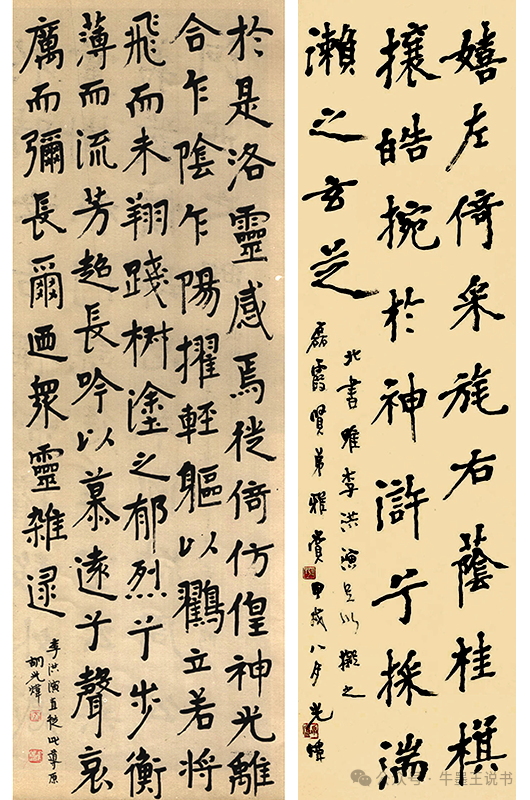 嬉左倚采旄右蔭桂旗
攘皓捥於神滸兮採湍
瀨之玄芝
北書唯李洪演足以擬之
磊霞賢弟雅賞 甲戌八月 光煒
於是洛靈感焉徙倚仿偟神光離
合乍陰乍陽擢輕軀以鶴立若將
飛而未翔踐椒塗之郁烈兮步衡
薄而流芳超長吟以慕遠兮聲哀
厲而彌長爾迺眾靈雜遝
李洪演直從此導原
胡光煒
公众号·牛墨王说书